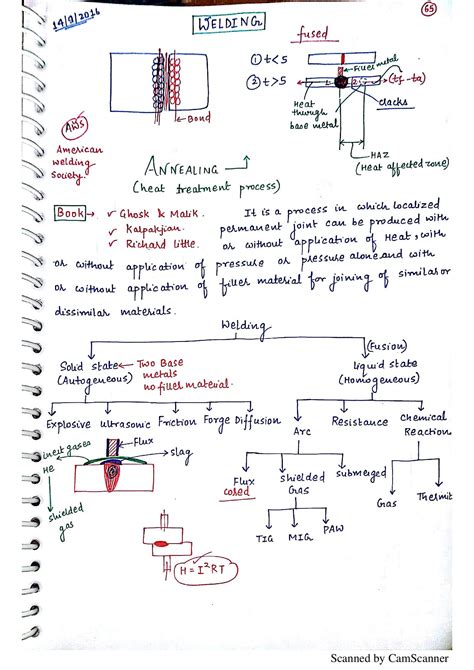 65
14/9/2016
WELDING
fused
① t<5
Filler metal
② t>5
1 2
(tf - ta)
clacks
Heat
through
base metal
Bond
AWS
American
welding
Society.
HAZ
(Heat affected zone)
ANNEALING
(heat treatment process)
Book → ✓ Ghosk & Malik.
✓ Kalpakjian.
✓ Richard little.
It is a process in which localized
permanent joint can be produced with
or without application of Heat, with
or without application of pressure or pressure alone and with
or without application of filler material for joining of similar or
dissimilar materials.
Welding
Solid state ← Two Base
metals
no filler material.
(Autogeneous)
(Fusion)
liquid state
(Homogeneous)
Explosive ultrasonic Friction Forge Diffusion
Arc Resistance Chemical
Reaction
inert gases
Flux
slag
He
shielded
gas
Flux
cored
shielded
Gas
submerged
Gas Thermit
TIG MIG PAW
H = I²RT
Scanned by CamScanner